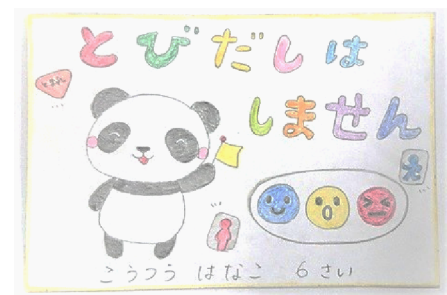 とびだしは
しません
とまれ
こうつう はなこ 6さい